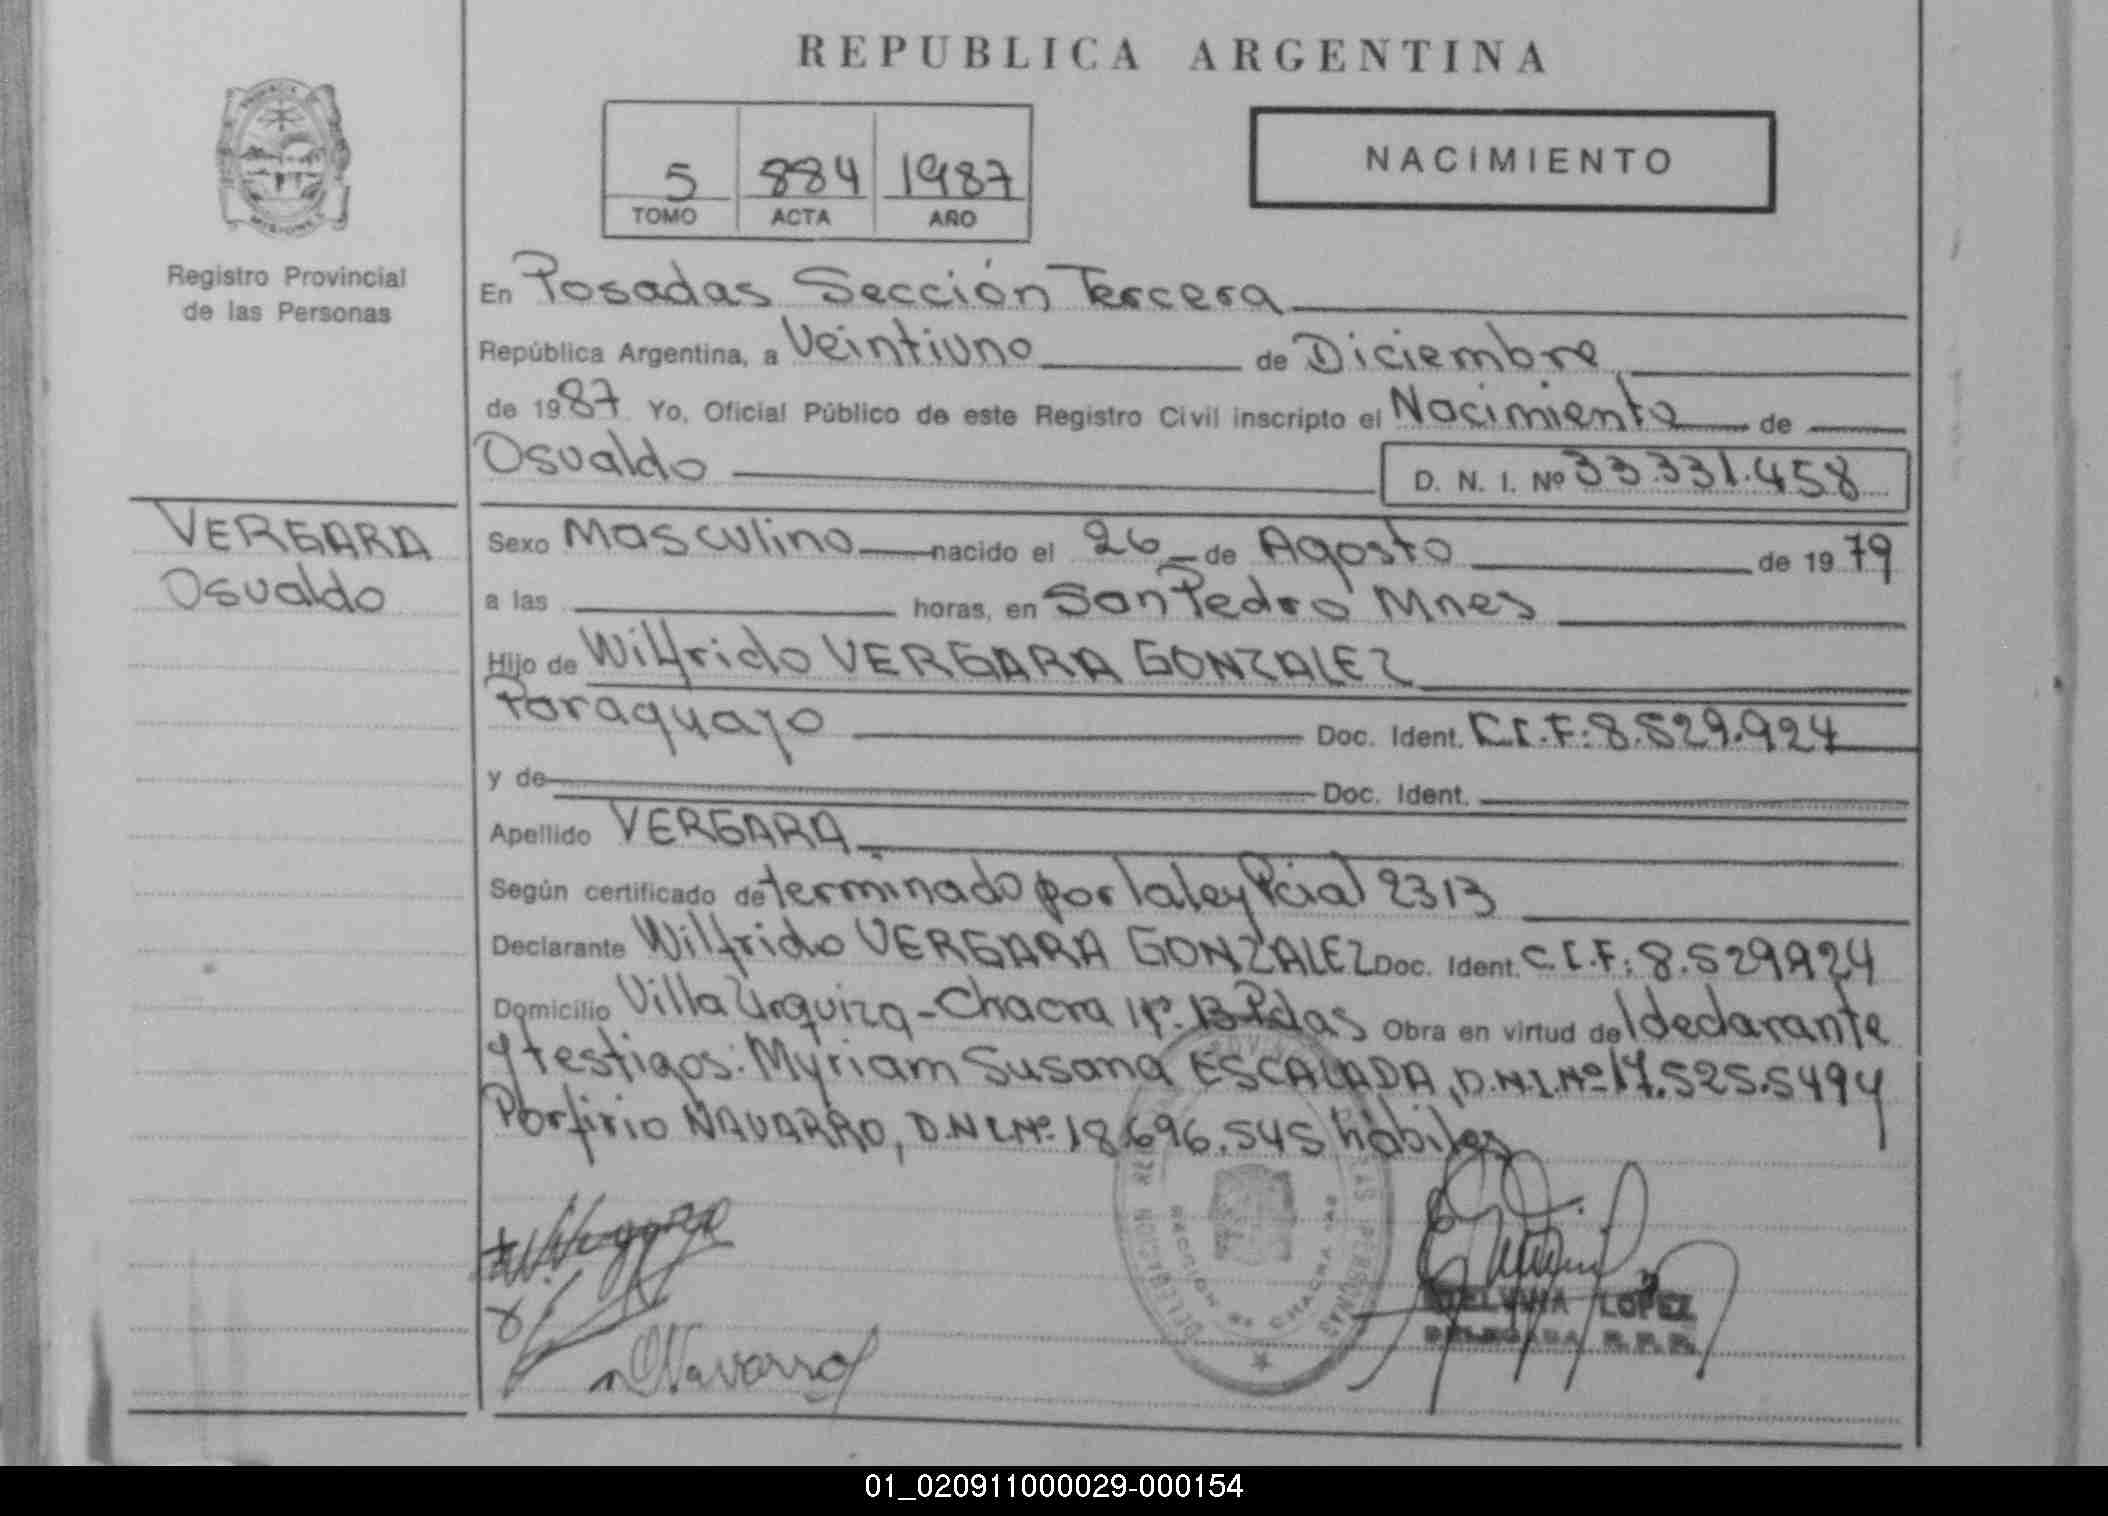 REPUBLICA ARGENTINA
NACIMIENTO
5 884 1987
TOMO ACTA AÑO
Registro Provincial
de las Personas
En Posadas Sección Tercera
República Argentina, a Veintiuno de Diciembre
de 1987 Yo, Oficial Público de este Registro Civil inscripto el Nacimiento de
Osvaldo D. N. I. Nº 33.331.458
VERGARA
Osvaldo
Sexo Masculino nacido el 26 de Agosto de 1979
a las horas, en San Pedro Mnes
Hijo de Wilfrido VERGARA GONZALEZ
Paraguayo Doc. Ident. C.I.F: 8.529.924
y de Doc. Ident.
Apellido VERGARA
Según certificado determinado por la ley Pcial 2313
Declarante Wilfrido VERGARA GONZALEZ Doc. Ident. C.I.F: 8.529924
Domicilio Villa Urquiza-Chacra Nº. 13-Pdas Obra en virtud del declarante
y testigos: Myriam Susana ESCALADA, D.N.I.Nº 17.525.549 y
Porfirio NAVARRO, D.N.I.Nº 18.696.545 hábiles
Navarro
LOPEZ
DELEGADA R.P.P.
01_020911000029-000154